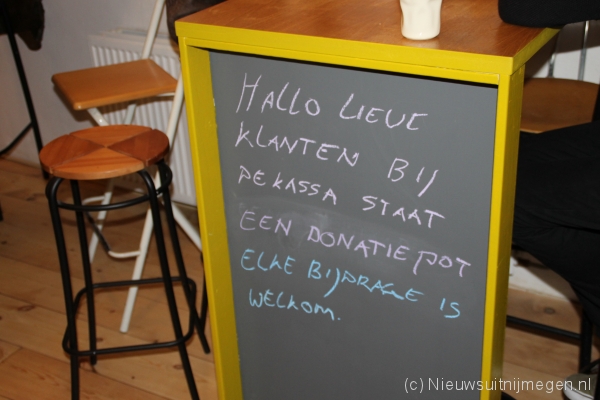 HALLO LIEVE
KLANTEN BIJ
DE KASSA STAAT
EEN DONATIEPOT
ELKE BIJDRAGE IS
WELKOM.
(c) Nieuwsuitnijmegen.nl